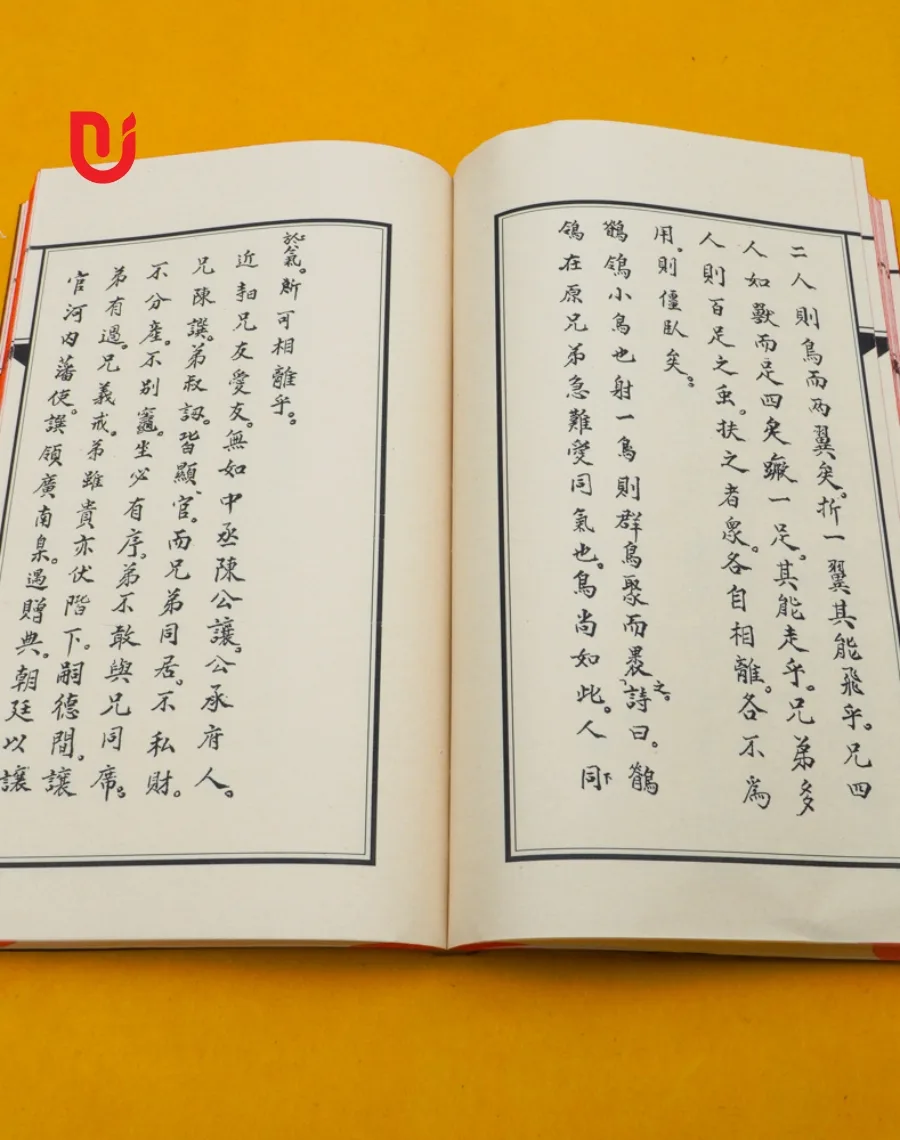 二人則鳥而两翼矣。折一翼其能飛乎。兄四
人如獸而足四矣蹶一足。其能走乎。兄弟多
人則百足之虫。扶之者衆。各自相離。各不爲
用。則僵臥矣。
鶺鴒小鳥也射一鳥則群鳥聚而之。詩曰。鶺
鴒在原兄弟急難愛同氣也。鳥尚如此。人同
於氣。斯可相離乎。
近兄友愛友。無如中丞陳公讓。公承府人。
兄陳譔。弟叔訒。皆顯官。而兄弟同居。不私財。
不分產。不別竈。坐必有序。弟不敢與兄同席。
弟有過。兄義戒。弟雖貴亦伏階下。嗣德間。讓
官河内藩使。譔領廣南臬。遇贈典。朝廷以讓